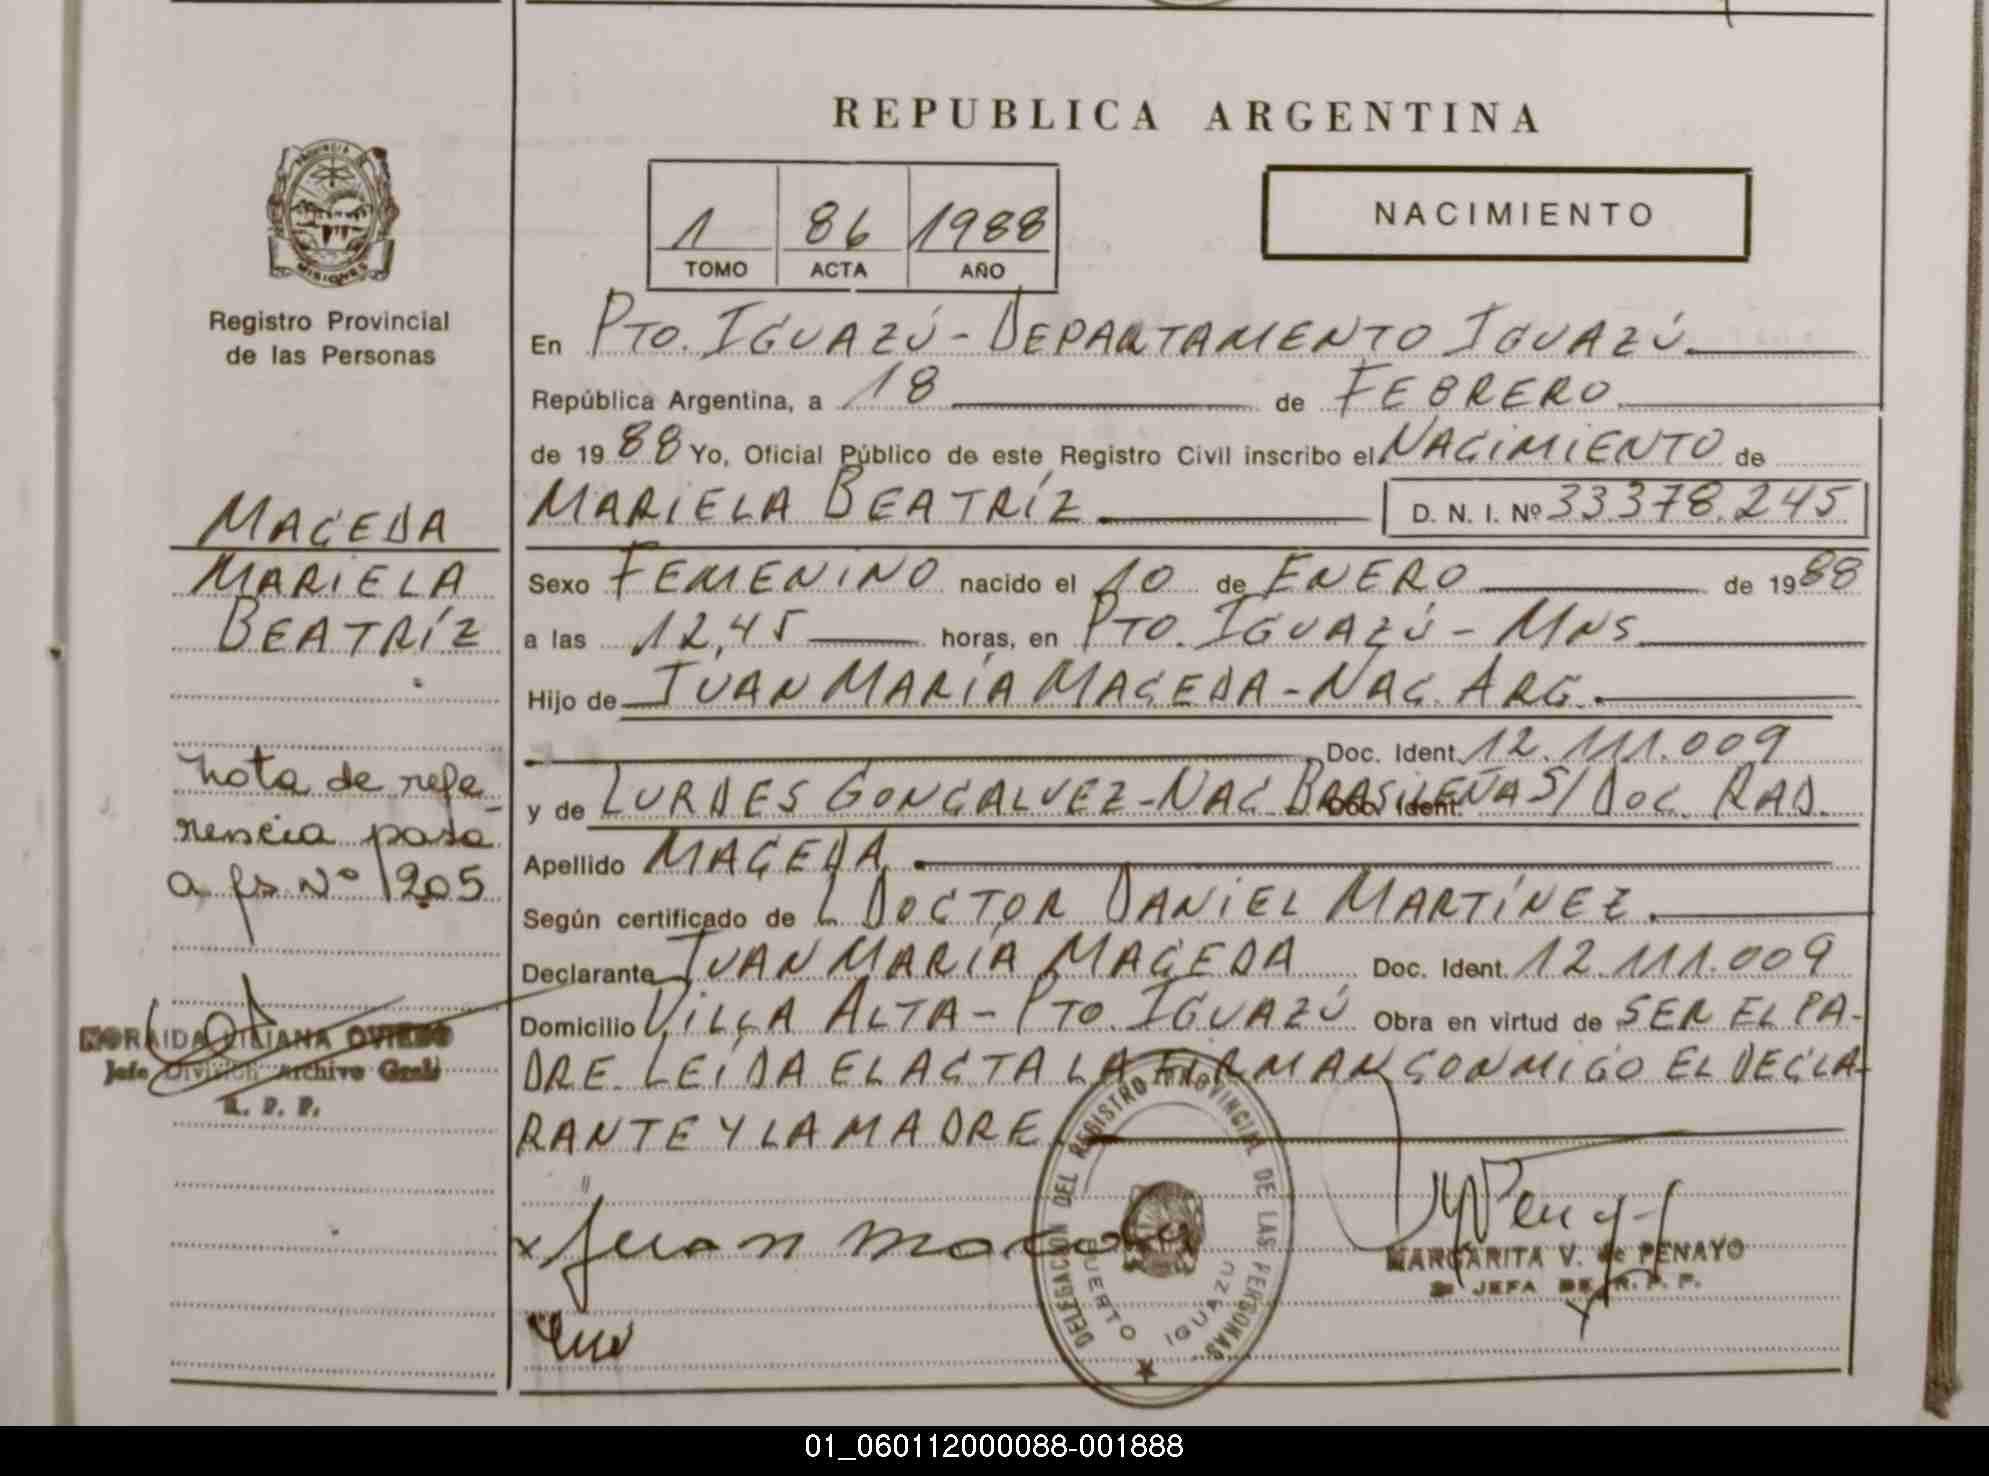 REPUBLICA ARGENTINA
PROVINCIA DE
MISIONES
Registro Provincial
de las Personas
1 86 1988
TOMO ACTA AÑO
NACIMIENTO
En PTO. IGUAZÚ - DEPARTAMENTO IGUAZÚ.
República Argentina, a 18 de FEBRERO
de 1988 Yo, Oficial Público de este Registro Civil inscribo el NACIMIENTO de
MARIELA BEATRÍZ D. N. I. Nº 33.378.245
Sexo FEMENINO nacido el 10 de ENERO de 1988
a las 12,45 horas, en PTO. IGUAZÚ - MNS
Hijo de JUAN MARÍA MACEDA - NAC. ARG.
Doc. Ident. 12.111.009
y de LURDES GONCALVEZ - NAC BRASILEÑA S/DOC. RAD. Doc. Ident.
Apellido MACEDA
Según certificado de L DOCTOR DANIEL MARTÍNEZ.
Declarante JUAN MARÍA MACEDA Doc. Ident. 12.111.009
Domicilio VILLA ALTA - PTO. IGUAZÚ Obra en virtud de SER EL PA-
DRE. LEÍDA EL ACTA LA FIRMAN CONMIGO EL DECLA-
RANTE Y LA MADRE.
MACEDA
MARIELA
BEATRÍZ
nota de refe-
rencia pasa
a fs Nº 1205
NORAIDA LILIANA OVIEDO
Jefe División Archivo Gral
R. P. P.
x Juan maceda
DELEGACION DEL REGISTRO PROVINCIAL DE LAS PERSONAS
PUERTO IGUAZU
MARGARITA V. de PENAYO
JEFA DE R. P. P.
01_060112000088-001888